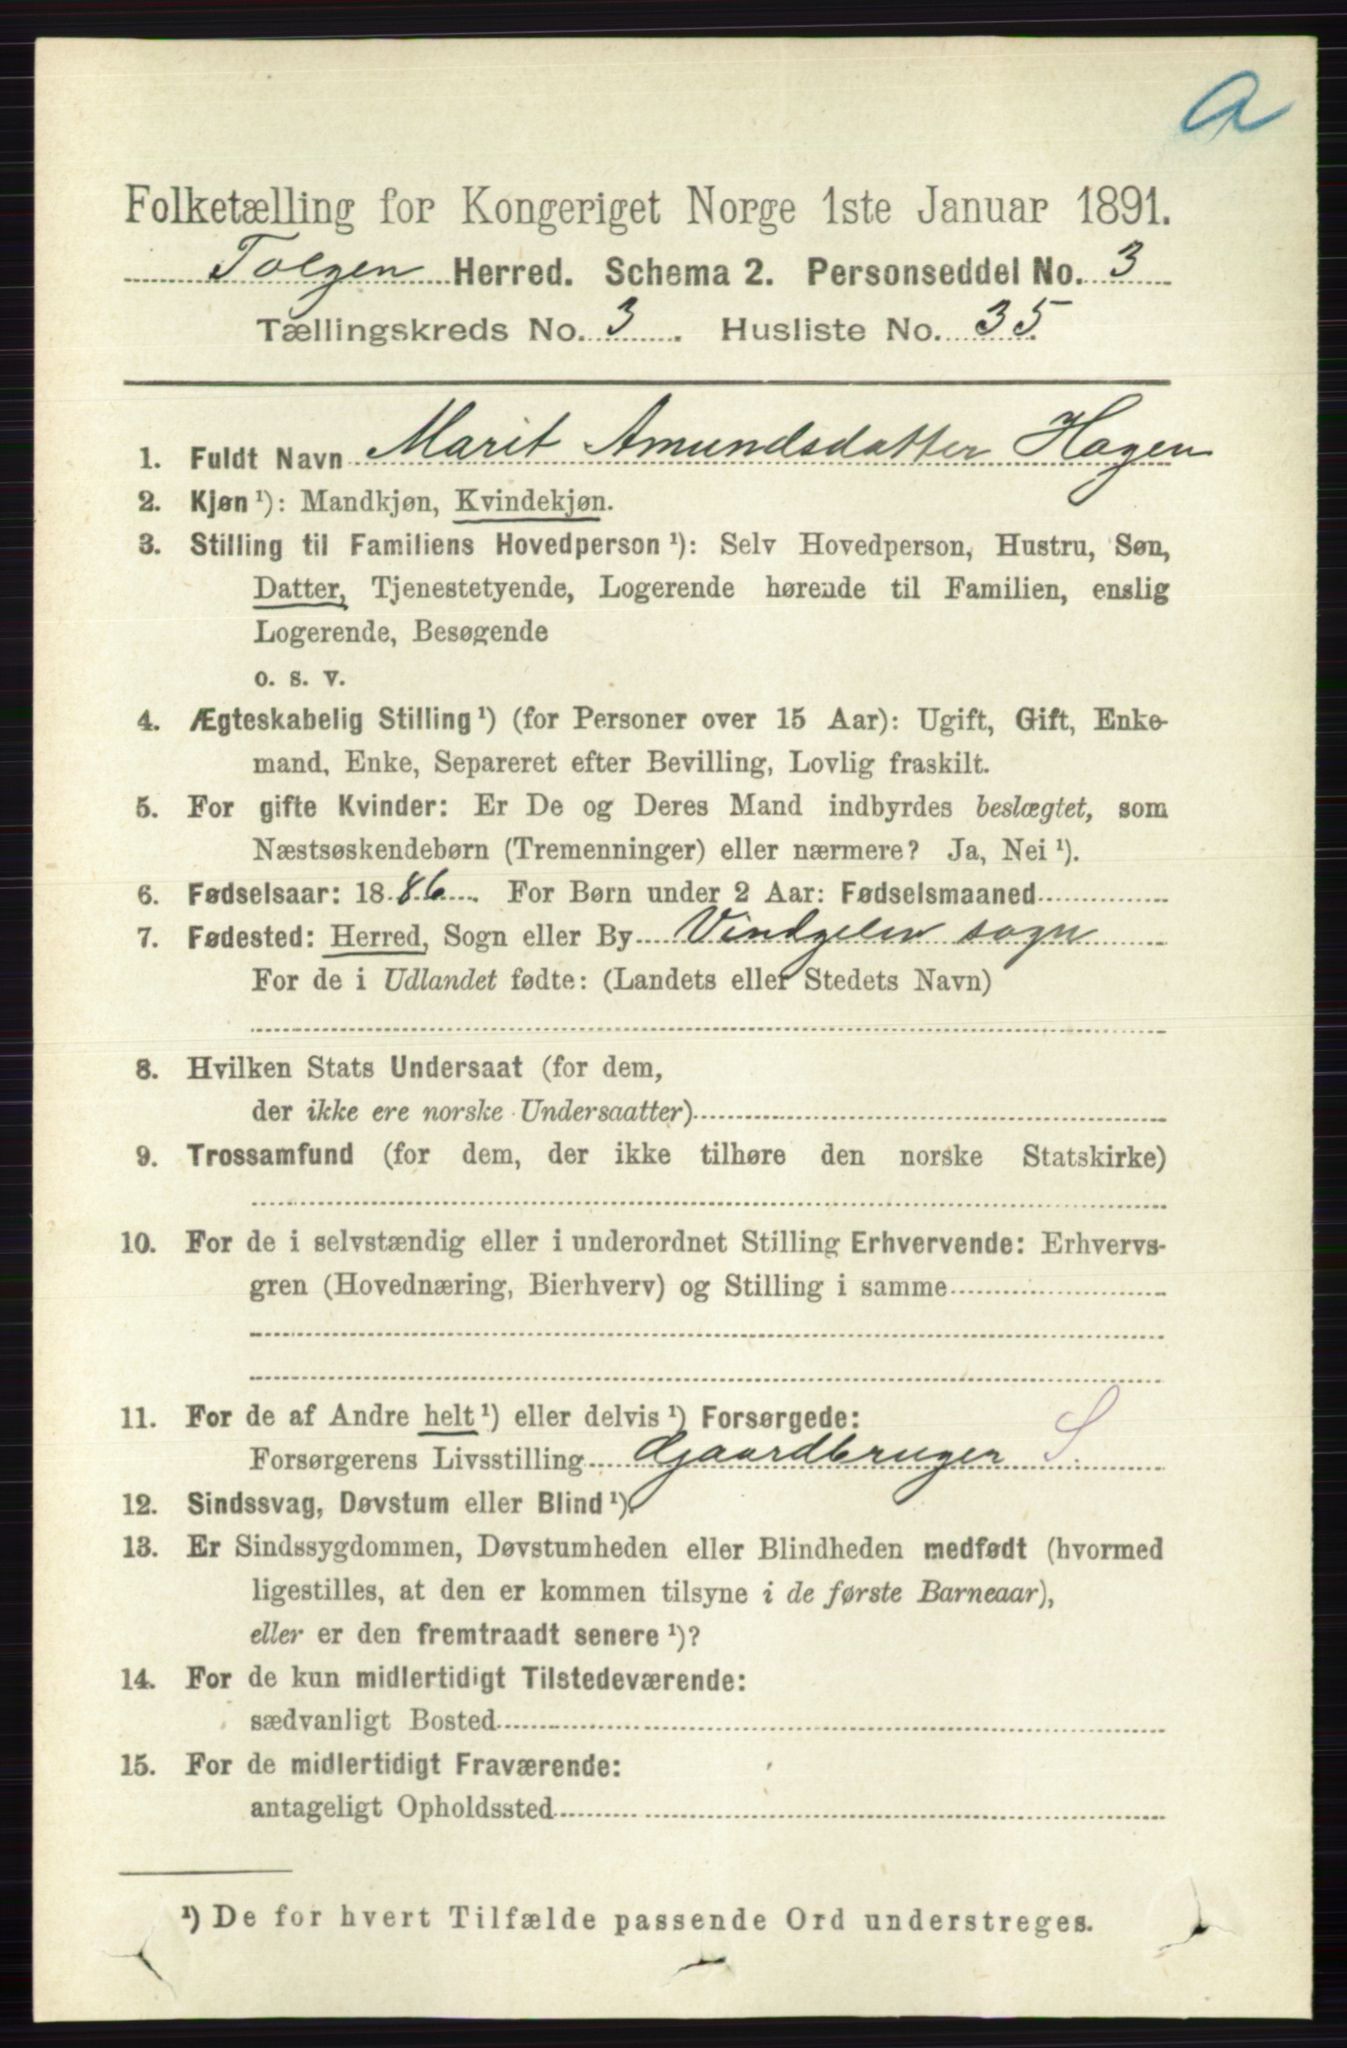 a
Folketælling for Kongeriget Norge 1ste Januar 1891.
Tolgen Herred. Schema 2. Personseddel No. 3
Tællingskreds No. 3. Husliste No. 35.
1. Fuldt Navn Marit Amundsdatter Hagen
2. Kjøn ¹): Mandkjøn, Kvindekjøn.
3. Stilling til Familiens Hovedperson ¹): Selv Hovedperson, Hustru, Søn,
Datter, Tjenestetyende, Logerende hørende til Familien, enslig
Logerende, Besøgende
o. s. v.
4. Ægteskabelig Stilling ¹) (for Personer over 15 Aar): Ugift, Gift, Enke-
mand, Enke, Separeret efter Bevilling, Lovlig fraskilt.
5. For gifte Kvinder: Er De og Deres Mand indbyrdes beslægtet, som
Næstsøskendebørn (Tremenninger) eller nærmere? Ja, Nei ¹).
6. Fødselsaar: 1886. For Børn under 2 Aar: Fødselsmaaned
7. Fødested: Herred, Sogn eller By Vindgelen sogn
For de i Udlandet fødte: (Landets eller Stedets Navn)
8. Hvilken Stats Undersaat (for dem,
der ikke ere norske Undersaatter)
9. Trossamfund (for dem, der ikke tilhøre den norske Statskirke)
10. For de i selvstændig eller i underordnet Stilling Erhvervende: Erhvervs-
gren (Hovednæring, Bierhverv) og Stilling i samme
11. For de af Andre helt ¹) eller delvis ¹) Forsørgede:
Forsørgerens Livsstilling Gaardbruger S.
12. Sindssvag, Døvstum eller Blind ¹).
13. Er Sindssygdommen, Døvstumheden eller Blindheden medfødt (hvormed
ligestilles, at den er kommen tilsyne i de første Barneaar),
eller er den fremtraadt senere ¹)?
14. For de kun midlertidigt Tilstedeværende:
sædvanligt Bosted
15. For de midlertidigt Fraværende:
antageligt Opholdssted
¹) De for hvert Tilfælde passende Ord understreges.